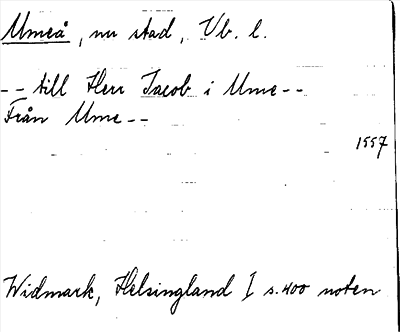 Umeå, nu stad, Vb. l.
-- till Herr Jacob i Ume --
Från Ume --
1557
Widmark, Helsingland I s. 400 noten